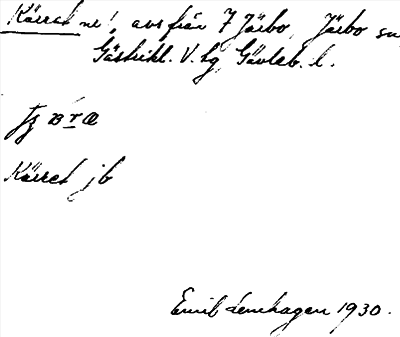 Kärret ne!, avs från 7 Järbo, Järbo sn,
Gästrikl. V. tg, Gävleb. l.
Kärret jb
Emil Lenhagen 1930.